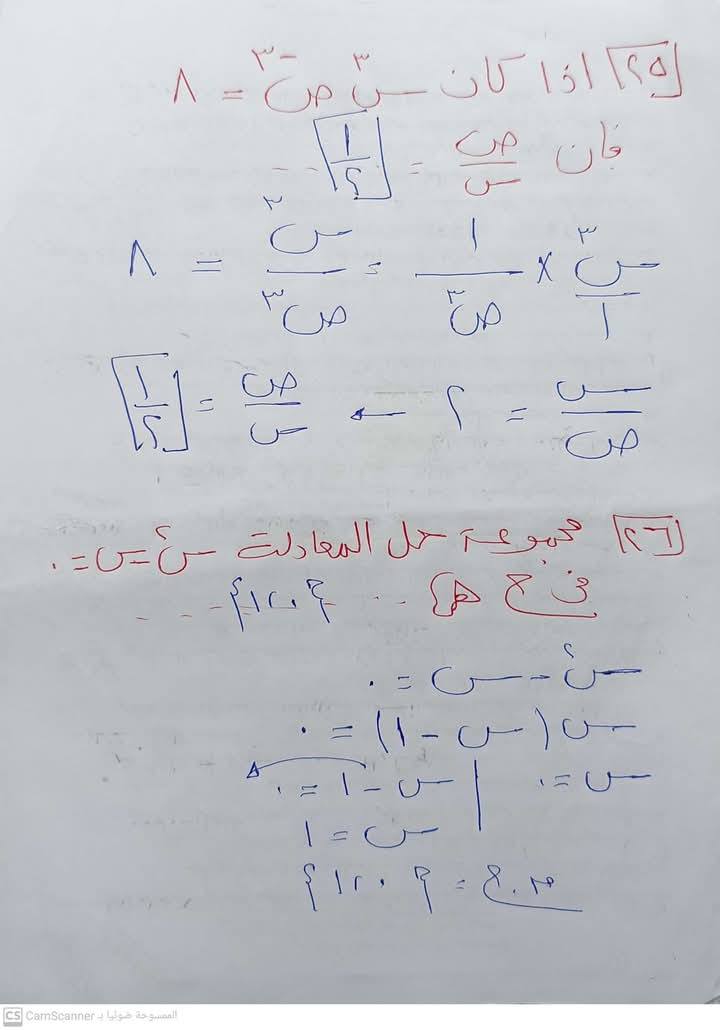 [٢٥] اذا كان س٣ ص-٣ = ٨
فان ص/س = [١/٢] ...
س٣/١ × ١/ص٣ = س٣/ص٣ = ٨
س/ص = ٢ ← ص/س = [١/٢]
[٢٦] مجموعة حل المعادلة س٢ - س = ٠
فى ح هى ... {٠ ، ١} ...
س٢ - س = ٠
س (س - ١) = ٠
س = ٠ | س - ١ = ٠
س = ١
م.ح = {٠ ، ١}
CS CamScanner الممسوحة ضوئيا بـ